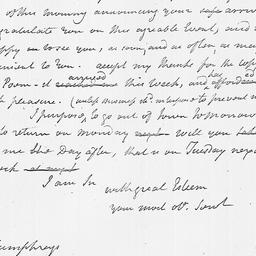 of this morning announcing your safe arriv
gratulate you on this agreable Event, and
ppy to see you, as soon, and as often, as
nient to You. accept my thanks for the copy
Poem – it arrived this week, and has afforded
pleasure.
I purpose to go out of Town tomorrow
to return on monday will you
me the Day after, that is on Tuesday next
I am Sir with great Esteem
your most ob. Servt
umphreys